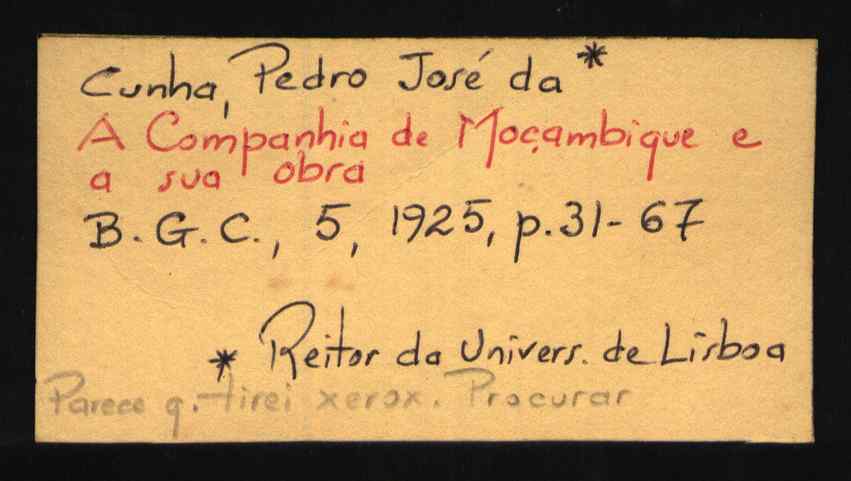 Cunha, Pedro José da *
A Companhia de Moçambique e
a sua obra
B.G.C., 5, 1925, p.31-67
* Reitor da Univers. de Lisboa
Parece q. tirei xerox. Procurar